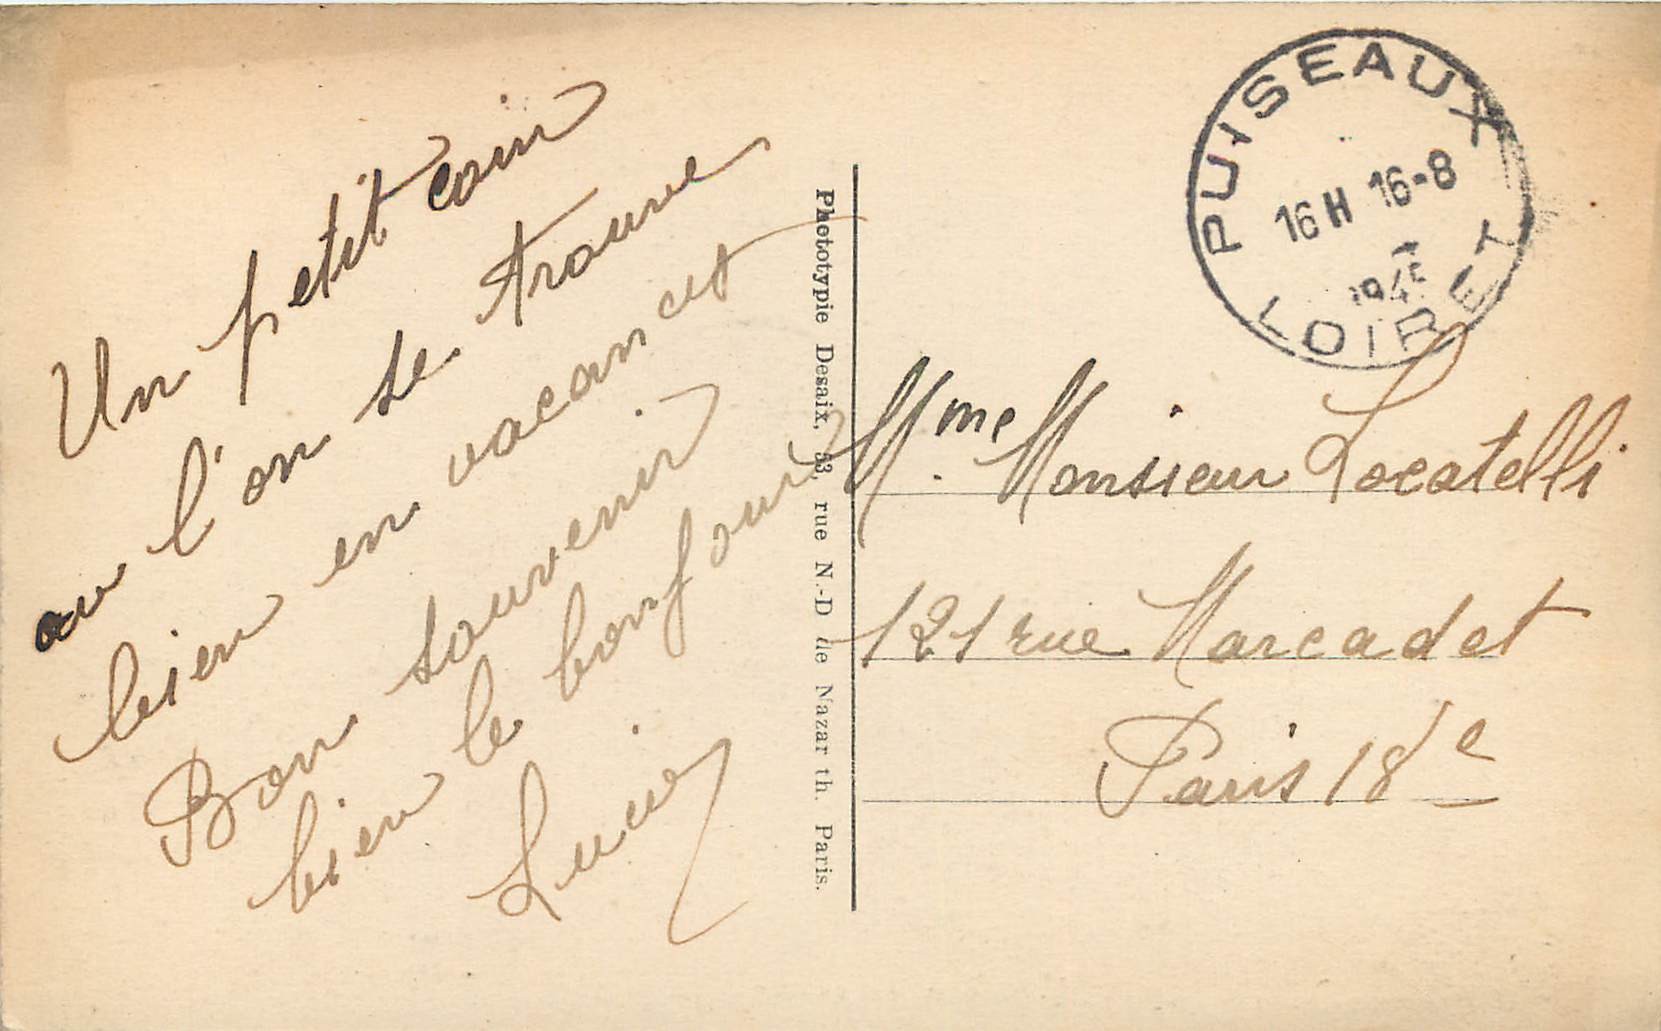 Un petit coin
ou l'on se trouve
bien en vacances
Bon souvenir
bien le bonjour
Phototypie Desaix, 53, rue N.-D de Nazareth. Paris.
PUISEAUX
16 H 16-8
LOIRET
Mme Monsieur Locatelli
121 rue Marcadet
Paris 18e